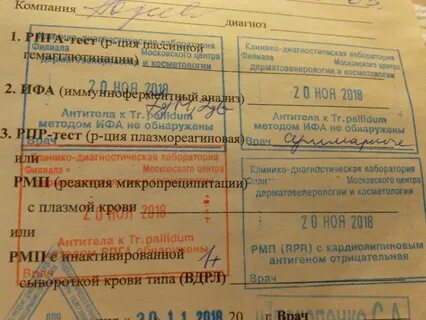 Компания
диагноз
1. РПГА-тест (р-ция пассивной
гемагглютинации)
2. ИФА (иммуноферментный анализ)
3. РПР-тест (р-ция плазмореагиновая)
или
РМП (реакция микропреципитации)
с плазмой крови
или
РМП с инактивированной
сывороткой крови типа (ВДРЛ)
20 г Врач
Клинико-диагностическая лаборатория
Филиала Московского центра
дерматовенерологии и косметологии
20 НОЯ 2018
Антитела к Tr. pallidum
методом ИФА не обнаружены
Врач
Клинико-диагностическая лаборатория
Филиала Московского центра
дерматовенерологии и косметологии
20 НОЯ 2018
Антитела к Tr. pallidum
методом ИФА не обнаружены
Врач
Клинико-диагностическая лаборатория
Филиала Московского центра
20 НОЯ 2018
Антитела к Tr.pallidum
методом РПГА не обнаружены
Врач
Клинико-диагностическая лаборатория
Филиала Московского центра
дерматовенерологии и косметологии
20 НОЯ 2018
РМП (RPR) с кардиолипиновым
антигеном отрицательная
Врач